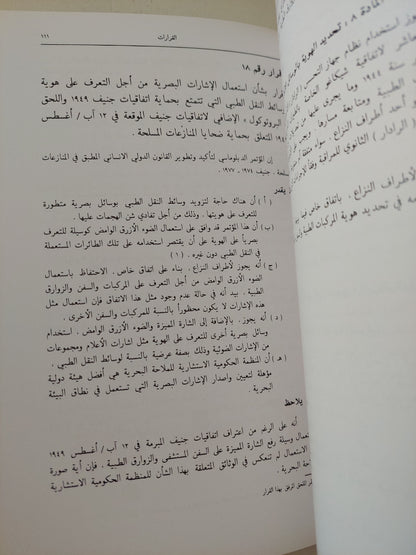 القرارات
١١١
قرار رقم ١٨
قرار بشأن استعمال الإشارات البصرية من أجل التعرف على هوية
وسائط النقل الطبي التي تتمتع بحماية إتفاقيات جنيف ١٩٤٩ واللحق
« البروتوكول » الإضافي لاتفاقيات جنيف الموقعة في ١٢ آب / أغسطس
١٩٤٩ المتعلق بحماية ضحايا المنازعات المسلحة .
إن المؤتمر الدبلوماسي لتأكيد وتطوير القانون الدولي الانساني المطبق في المنازعات
المسلحة . جنيف ١٩٧٤ ـ ١٩٧٧ .
يقدر
( أ ) أن هناك حاجة لتزويد وسائط النقل الطبي بوسائل بصرية متطورة
للتعرف على هويتها . وذلك من أجل تفادي شن الهجمات عليها .
(ب) أن هذا المؤتمر قد وافق على استعمال الضوء الأزرق الوامض كوسيلة للتعرف
بصرياً على الهوية على أن يقتصر استخدامه على تلك الطائرات المستعملة
في النقل الطبي دون غيره . (١)
(ج) أنه يجوز لأطراف النزاع . بناء على اتفاق خاص . الاحتفاظ باستعمال
الضوء الأزرق الوامض من أجل التعرف على المركبات والسفن والزوارق
الطبية . بيد أنه في حالة عدم وجود مثل هذا الاتفاق فإن استعمال مثل
هذه الإشارات لا يكون محظوراً بالنسبة للمركبات والسفن الأخرى .
( د ) أنه يجوز . بالإضافة إلى الشارة المميزة والضوء الأزرق الوامض . استخدام
وسائل بصرية أخرى للتعرف على الهوية مثل اشارات الأعلام ومجموعات
من الإشارات الضوئية وذلك بصفة عرضية بالنسبة لوسائط النقل الطبي .
(هـ) أن المنظمة الحكومية الاستشارية للملاحة البحرية هي أفضل هيئة دولية
مؤهلة لتعيين وإصدار الإشارات البصرية التي تستعمل في نطاق البيئة
البحرية .
يلاحظ
أنه على الرغم من اعتراف اتفاقيات جنيف المبرمة في ١٢ آب / أغسطس ١٩٤٩
باستعمال وسيلة رفع الشارة المميزة على السفن المستشفى والزوارق الطبية . فإن أية صورة
الاستعمال لم تنعكس في الوثائق المتعلقة بهذا الشأن للمنظمة الحكومية الاستشارية
البحرية .
المادة ٨ : تحديد الهوية
استخدام نظام جهاز التحسس
لاتفاقية شيكاغو
سنة ١٩٤٤ وما يجري عليها من
الطبية ومتابعة مسارها
أحد أطراف النزاع . سواء
( الرادار ) الثانوي للمراقبة وفقاً
لأطراف النزاع . باتفاق خاص فيما
في تحديد هوية المركبات الطبية